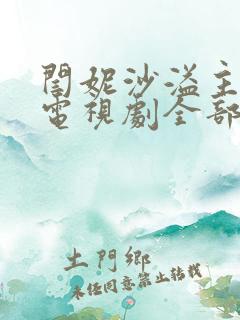 閆妮沙溢主
電視劇全部
土門鄉
未經同意禁止轉載